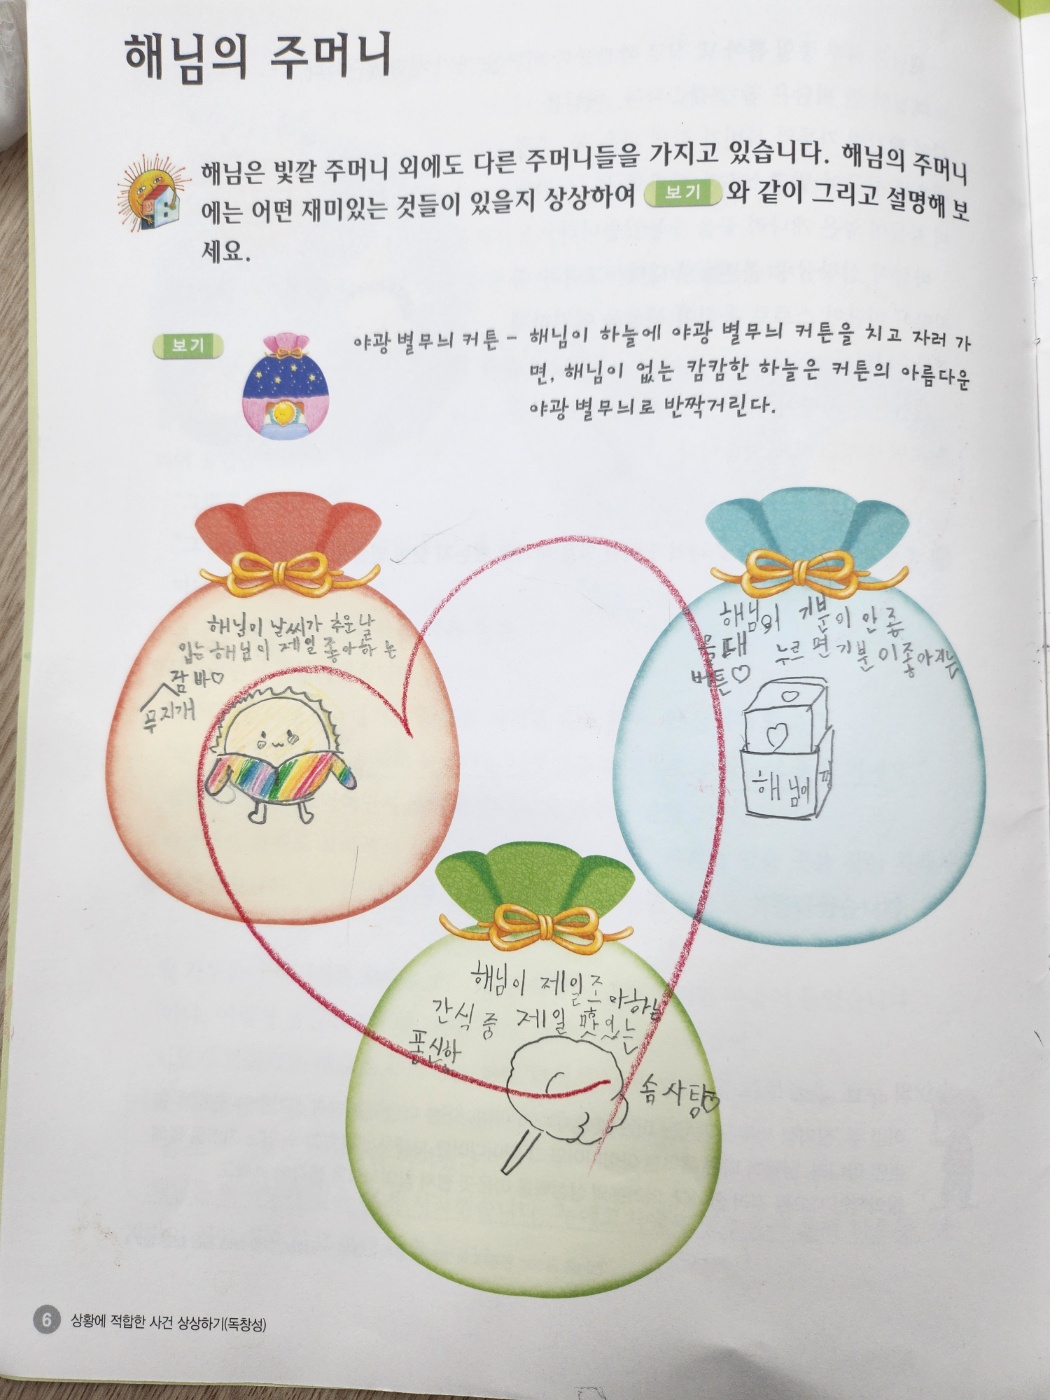 해님의 주머니
해님은 빛깔 주머니 외에도 다른 주머니들을 가지고 있습니다. 해님의 주머니
에는 어떤 재미있는 것들이 있을지 상상하여 보기 와 같이 그리고 설명해 보
세요.
보기
야광 별무늬 커튼 - 해님이 하늘에 야광 별무늬 커튼을 치고 자러 가
면, 해님이 없는 캄캄한 하늘은 커튼의 아름다운
야광 별무늬로 반짝거린다.
해님이 날씨가 추운 날
입는 해님이 제일 좋아하는
무지개
잠바♡
해님이 기분이 안 좋
을 때 누르면 기분이 좋아지는
버튼♡
해님이
해님이 제일 조아하는
간식 중 제일 맛있는
푹신한
솜사탕♡
6 상황에 적합한 사건 상상하기(독창성)